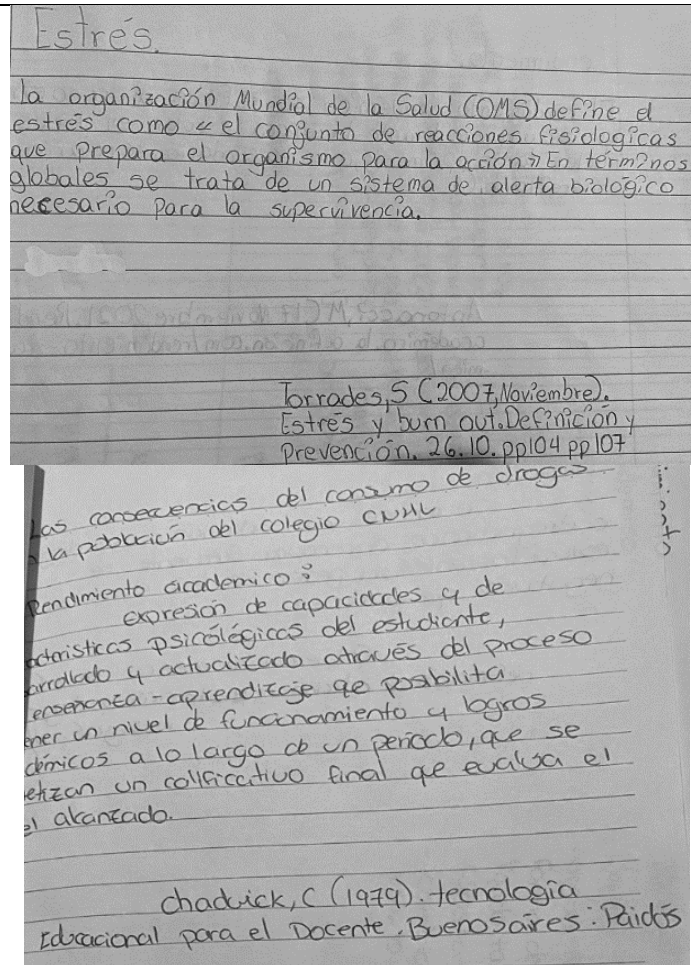 Estrés.
la organización Mundial de la Salud (OMS) define el
estrés como « el conjunto de reacciones fisiologicas
que prepara el organismo para la acción» En términos
globales se trata de un sistema de alerta biológico
necesario para la supervivencia.
Torrades, S (2007, Noviembre).
Estrés y burn out. Definición y
Prevención. 26.10. pp104 pp107
Las consecuencias del consumo de drogas
la población del colegio CNHL
Rendimiento academico:
expresión de capacidades y de
acteristicas psicológicas del estudiante,
arrollado y actualizado através del proceso
enseñanza-aprendizaje qe posibilita
ener un nivel de funcionamiento y logros
démicos a lo largo de un periodo, que se
etizan un calificativo final qe evalua el
el alcanzado.
chadwick, C (1979). tecnología
Educacional para el Docente. Buenosaires: Paidós